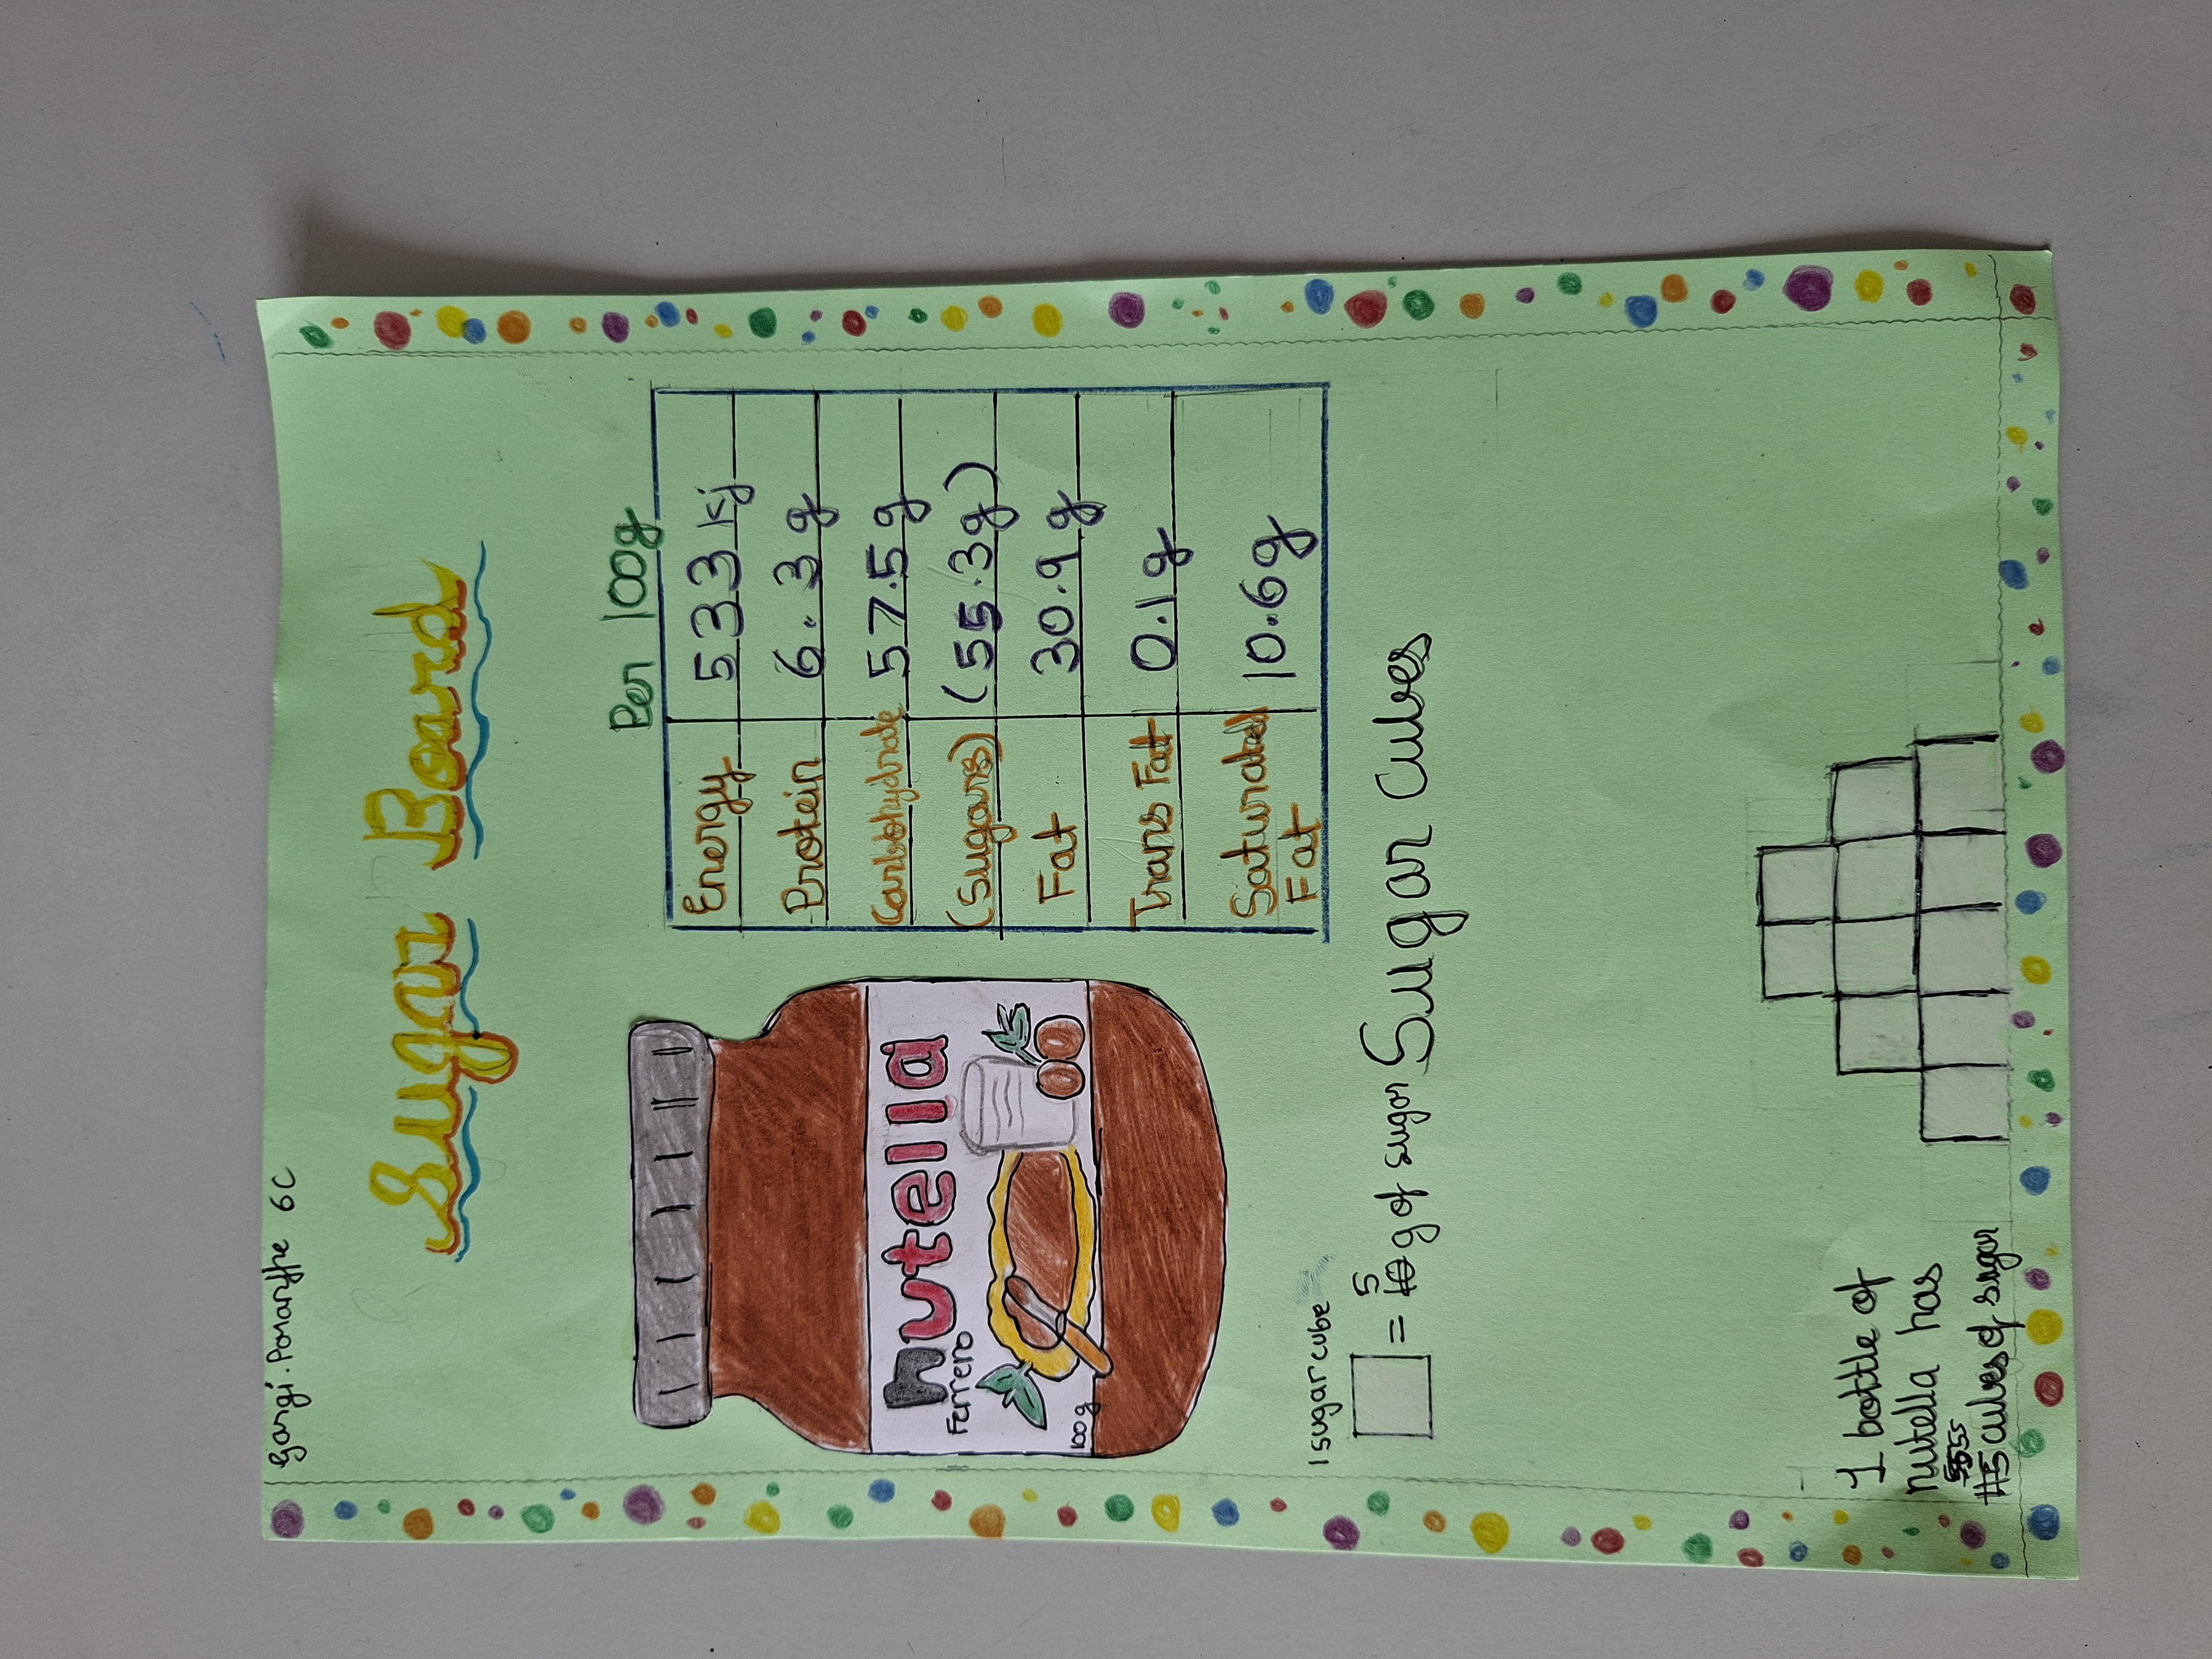 6C
Sugar Board
Per 100g
Energy 533 kj
Protein 6.3 g
Carbohydrate 57.5 g
(Sugars) (55.3g)
Fat 30.9 g
Trans Fat 0.1 g
Saturated Fat 10.6g
nutella
Ferrero
100 g
1 sugar cube
= 5 g of sugar
Sugar Cubes
1 bottle of
nutella has
cubes of sugar